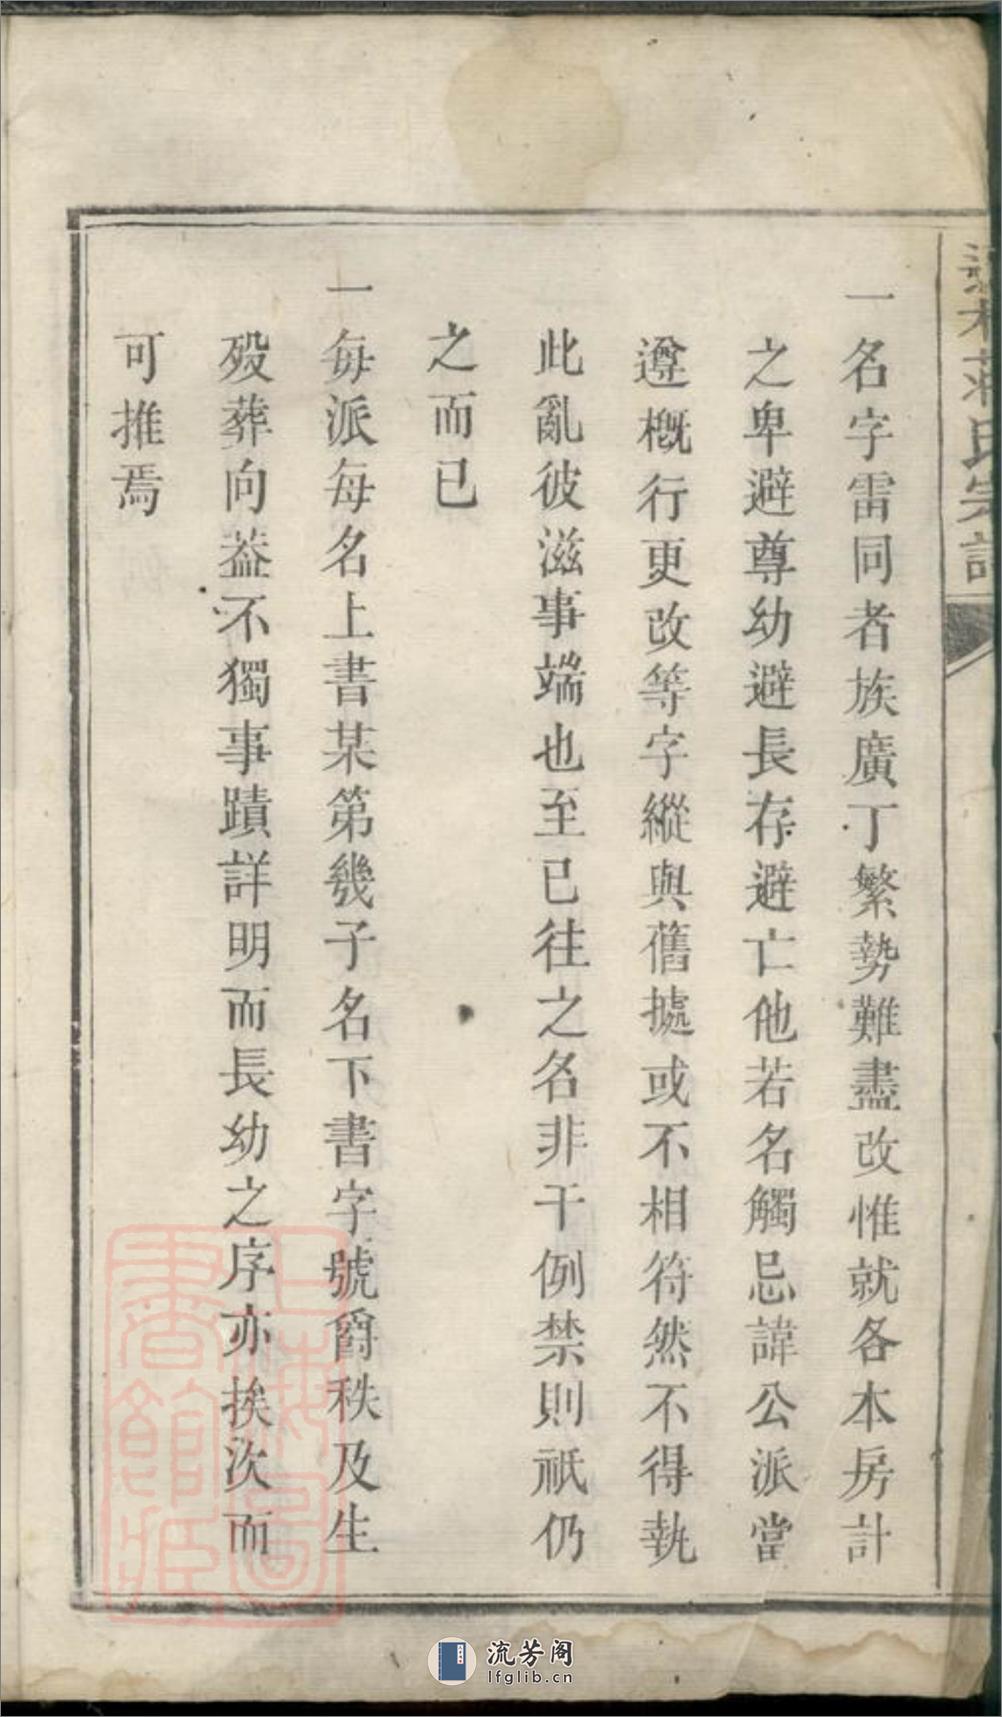 蔣氏宗譜
一名字雷同者族廣丁繁勢難盡改惟就各本房計
之卑避尊幼避長存避亡他若名觸忌諱公派當
遵概行更改等字縱與舊㨿或不相符然不得執
此亂彼滋事端也至已往之名非干例禁則祇仍
之而已
一每派每名上書某第幾子名下書字號爵秩及生
歿葬向葢不獨事蹟詳明而長幼之序亦挨次而
可推焉
上海圖書館藏
流芳阁
lfglib.cn